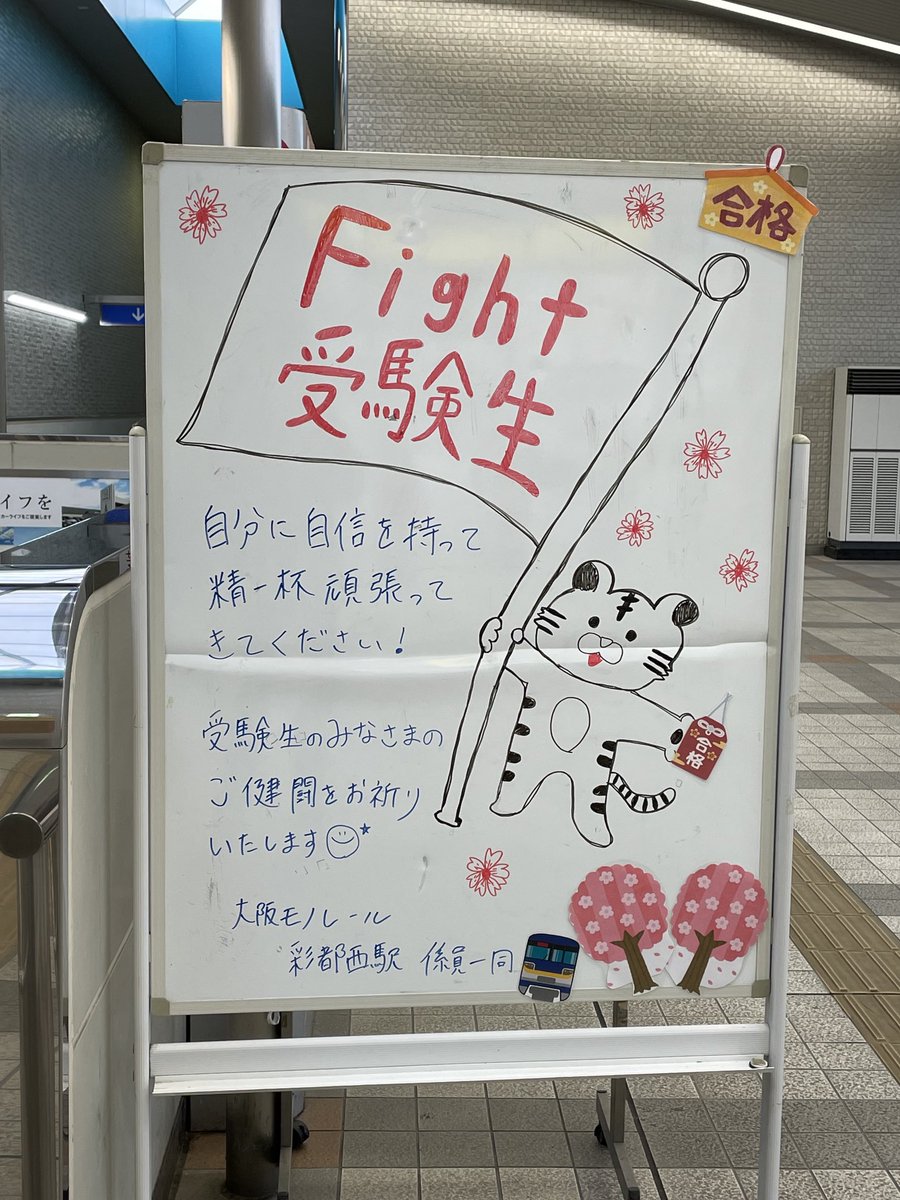 合格
Fight
受験生
自分に自信を持って
精一杯頑張って
きてください!
合格
受験生のみなさまの
ご健闘をお祈り
いたします
大阪モノレール
彩都西駅 係員一同
イフを
カーライフをご提案します